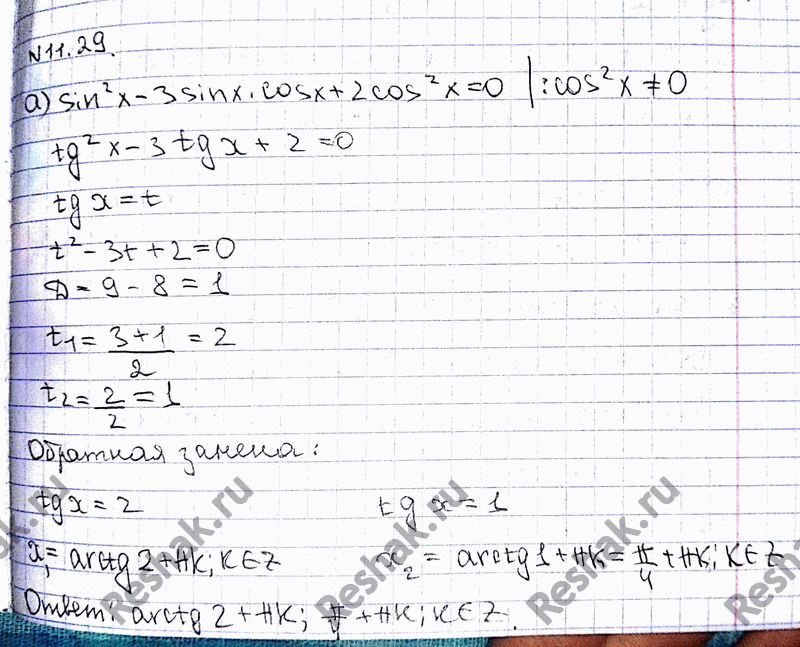 N11.29.
а) sin²x-3sinx·cosx+2cos²x=0 |:cos²x≠0
tg²x-3tgx+2=0
tgx=t
t²-3t+2=0
D=9-8=1
t₁=(3+1)/2=2
t₂=2/2=1
Обратная замена:
tgx=2 tgx=1
x₁=arctg2+πk; k∈Z x₂=arctg1+πk=π/4+πk; k∈Z
Ответ: arctg2+πk; π/4+πk; k∈Z.
Reshak.ru
Reshak.ru
Reshak.ru
Reshak.ru